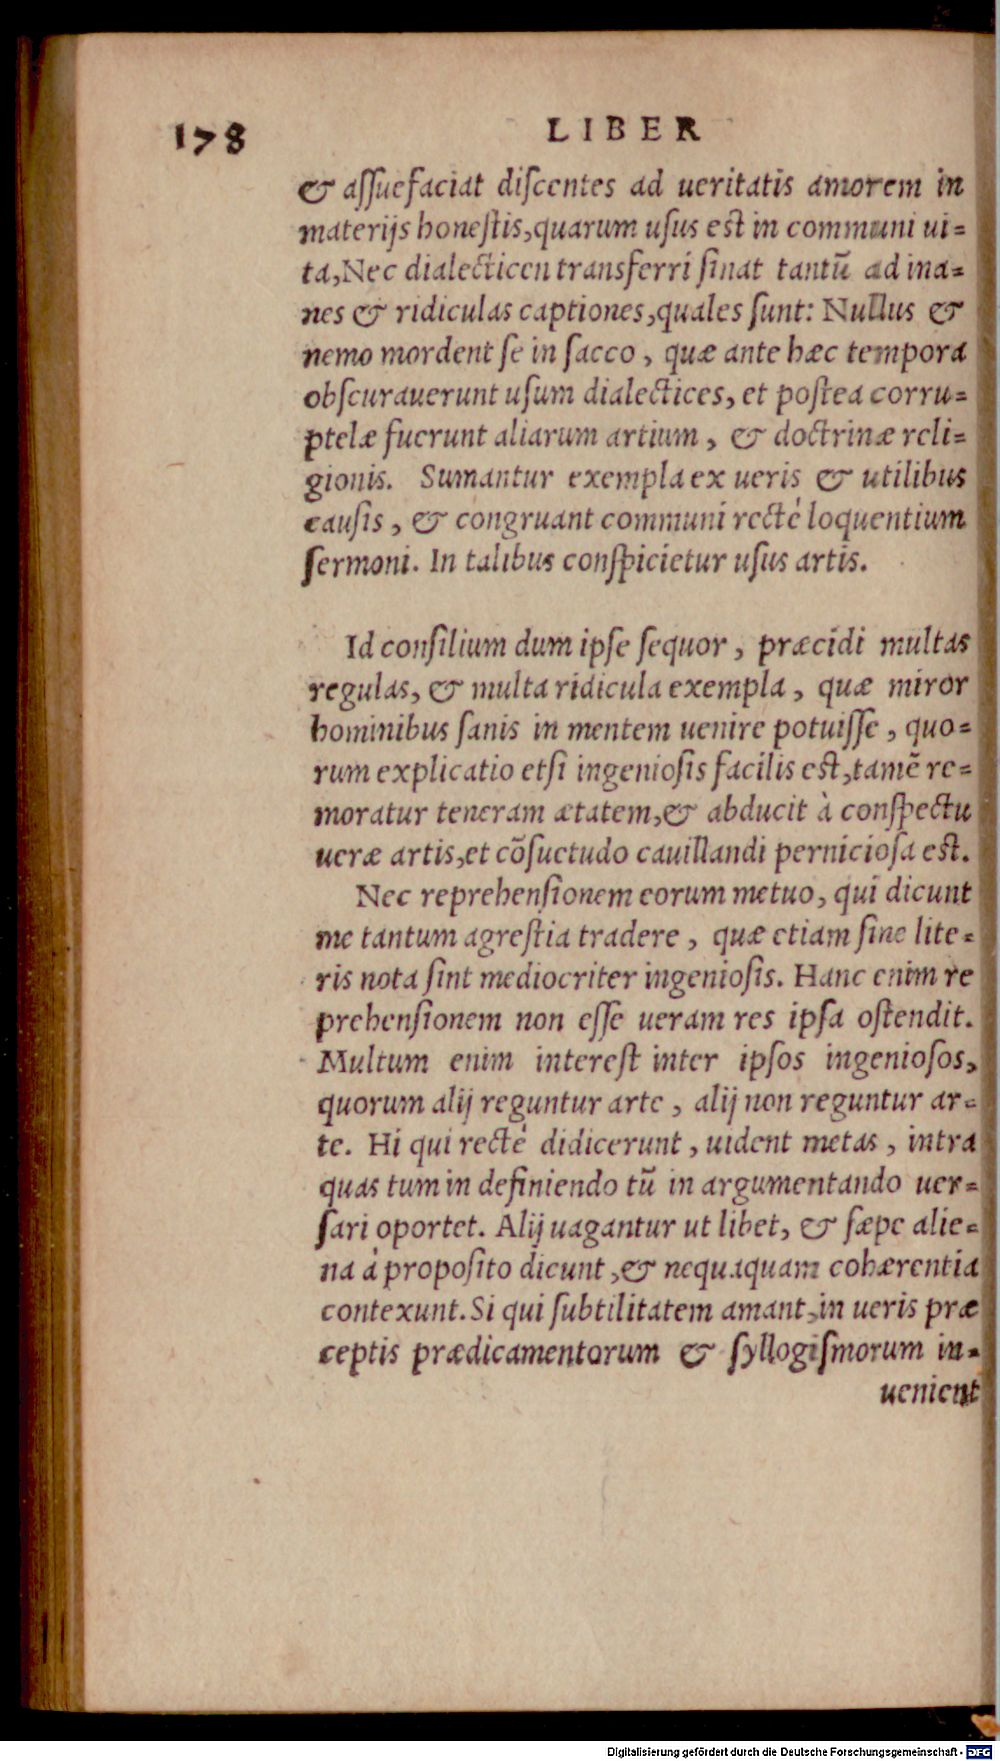 178
LIBER
& aſſuefaciat diſcentes ad ueritatis amorem in
materijs honeſtis,quarum uſus est in communi ui=
ta,Nec dialecticen transferri ſinat tantū ad ina=
nes & ridiculas captiones,quales ſunt: Nullus &
nemo mordent ſe in ſacco, quæ ante hæc tempora
obſcurauerunt uſum dialectices, et poſtea corru=
ptelæ fuerunt aliarum artium, & doctrinæ reli=
gionis. Sumantur exempla ex ueris & utilibus
cauſis, & congruant communi recté loquentium
ſermoni. In talibus conſpicietur uſus artis.
Id conſilium dum ipſe ſequor, præcidi multas
regulas, & multa ridicula exempla, quæ miror
hominibus ſanis in mentem uenire potuiſſe, quo=
rum explicatio etſi ingenioſis facilis est,tamē re=
moratur teneram ætatem,& abducit à conſpectu
ueræ artis,et cōſuetudo cauillandi pernicioſa est.
Nec reprehenſionem eorum metuo, qui dicunt
me tantum agreſtia tradere, quæ etiam ſine lite=
ris nota ſint mediocriter ingenioſis. Hanc enim re
prehenſionem non eſſe ueram res ipſa oſtendit.
Multum enim intereſt inter ipſos ingenioſos,
quorum alij reguntur arte, alij non reguntur ar=
te. Hi qui recté didicerunt, uident metas, intra
quas tum in definiendo tū in argumentando uer=
ſari oportet. Alij uagantur ut libet, & ſæpe alie=
na à propoſito dicunt,& nequaquam cohærentia
contexunt. Si qui ſubtilitatem amant,in ueris præ
ceptis prædicamentorum & ſyllogiſmorum in=
uenient
Digitalisierung gefördert durch die Deutsche Forschungsgemeinschaft - DFG